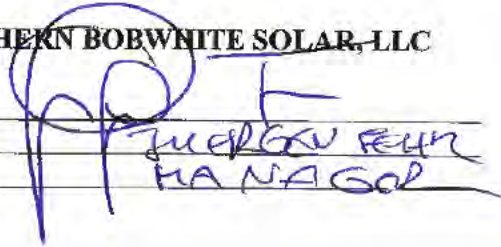 HERN BOBWHITE SOLAR, LLC
JUERGEN FEHR
MANAGER